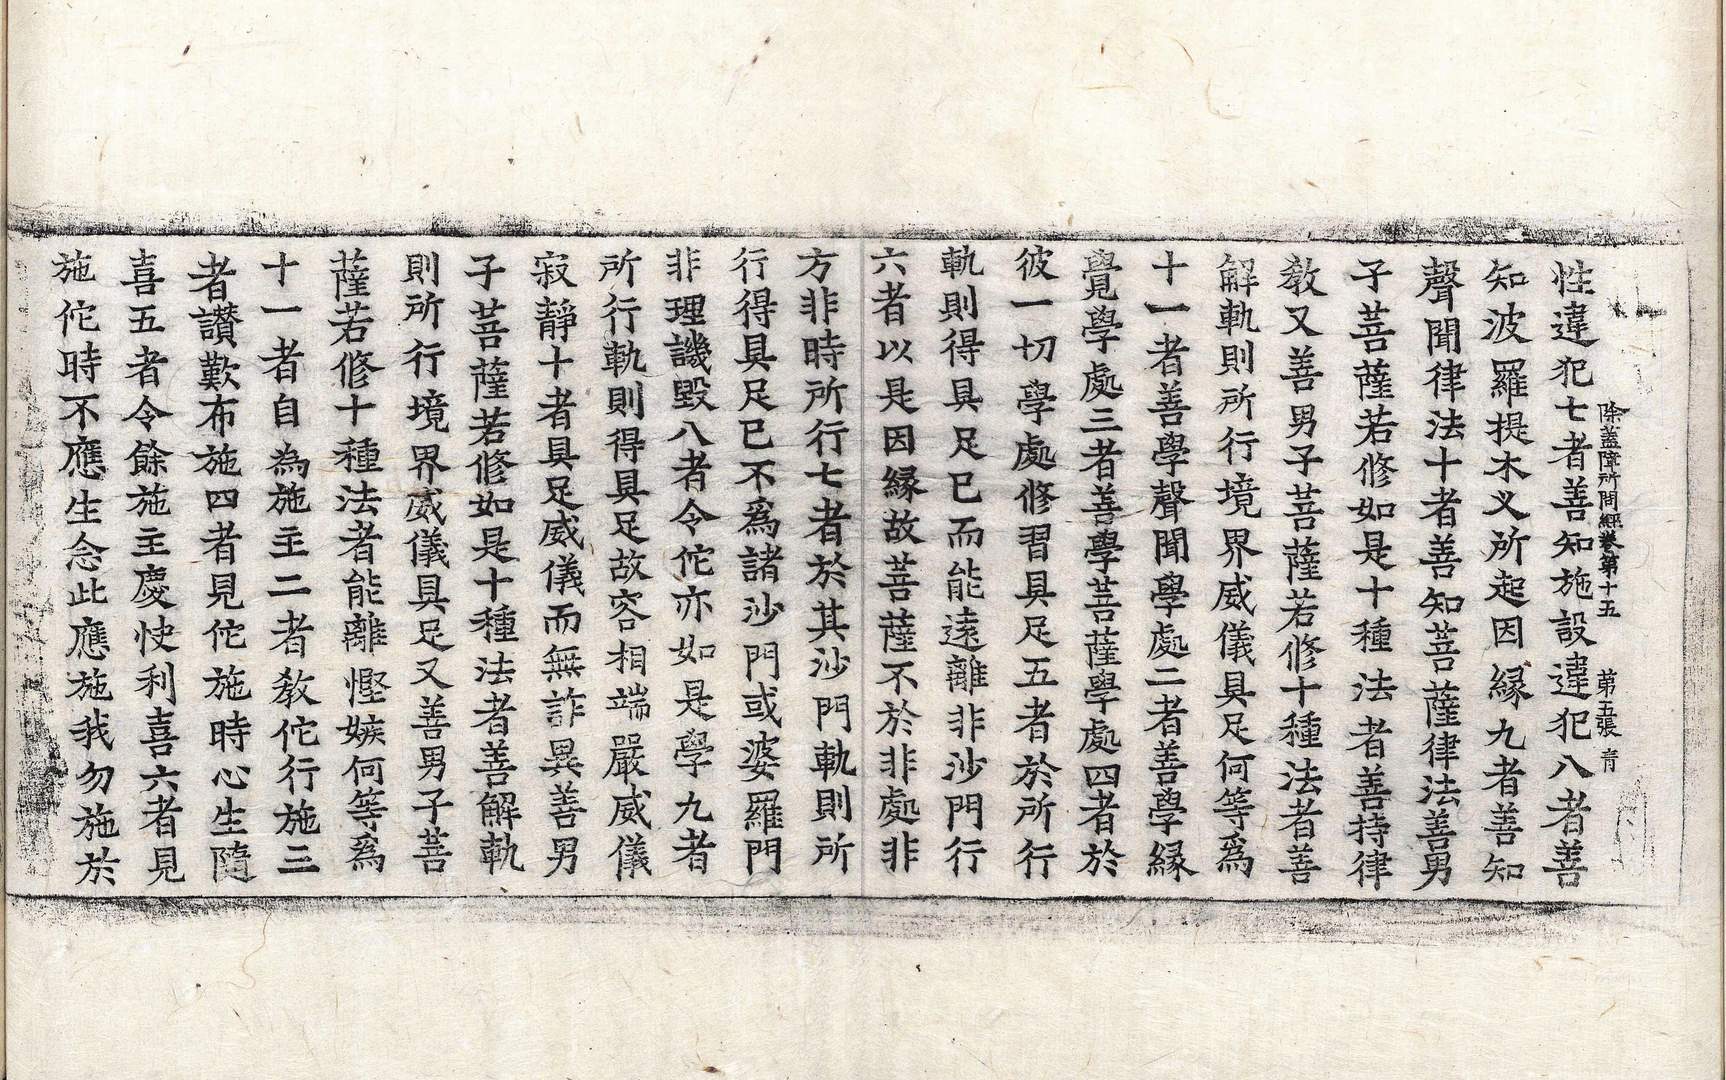 除蓋障所問經卷第十五　第五張　青
性違犯七者善知施設違犯八者善
知波羅提木叉所起因緣九者善知
聲聞律法十者善知菩薩律法善男
子菩薩若修如是十種法者善持律
教又善男子菩薩若修十種法者善
解軌則所行境界威儀具足何等為
十一者善學聲聞學處二者善學緣
覺學處三者善學菩薩學處四者於
彼一切學處修習具足五者於所行
軌則得具足已而能遠離非沙門行
六者以是因緣故菩薩不於非處非
方非時所行七者於其沙門軌則所
行得具足已不為諸沙門或婆羅門
非理譏毀八者令佗亦如是學九者
所行軌則得具足故容相端嚴威儀
寂靜十者具足威儀而無詐異善男
子菩薩若修如是十種法者善解軌
則所行境界威儀具足又善男子菩
薩若修十種法者能離慳嫉何等為
十一者自為施主二者教佗行施三
者讚歎布施四者見佗施時心生隨
喜五者令餘施主慶快利喜六者見
施佗時不應生念此應施我勿施於